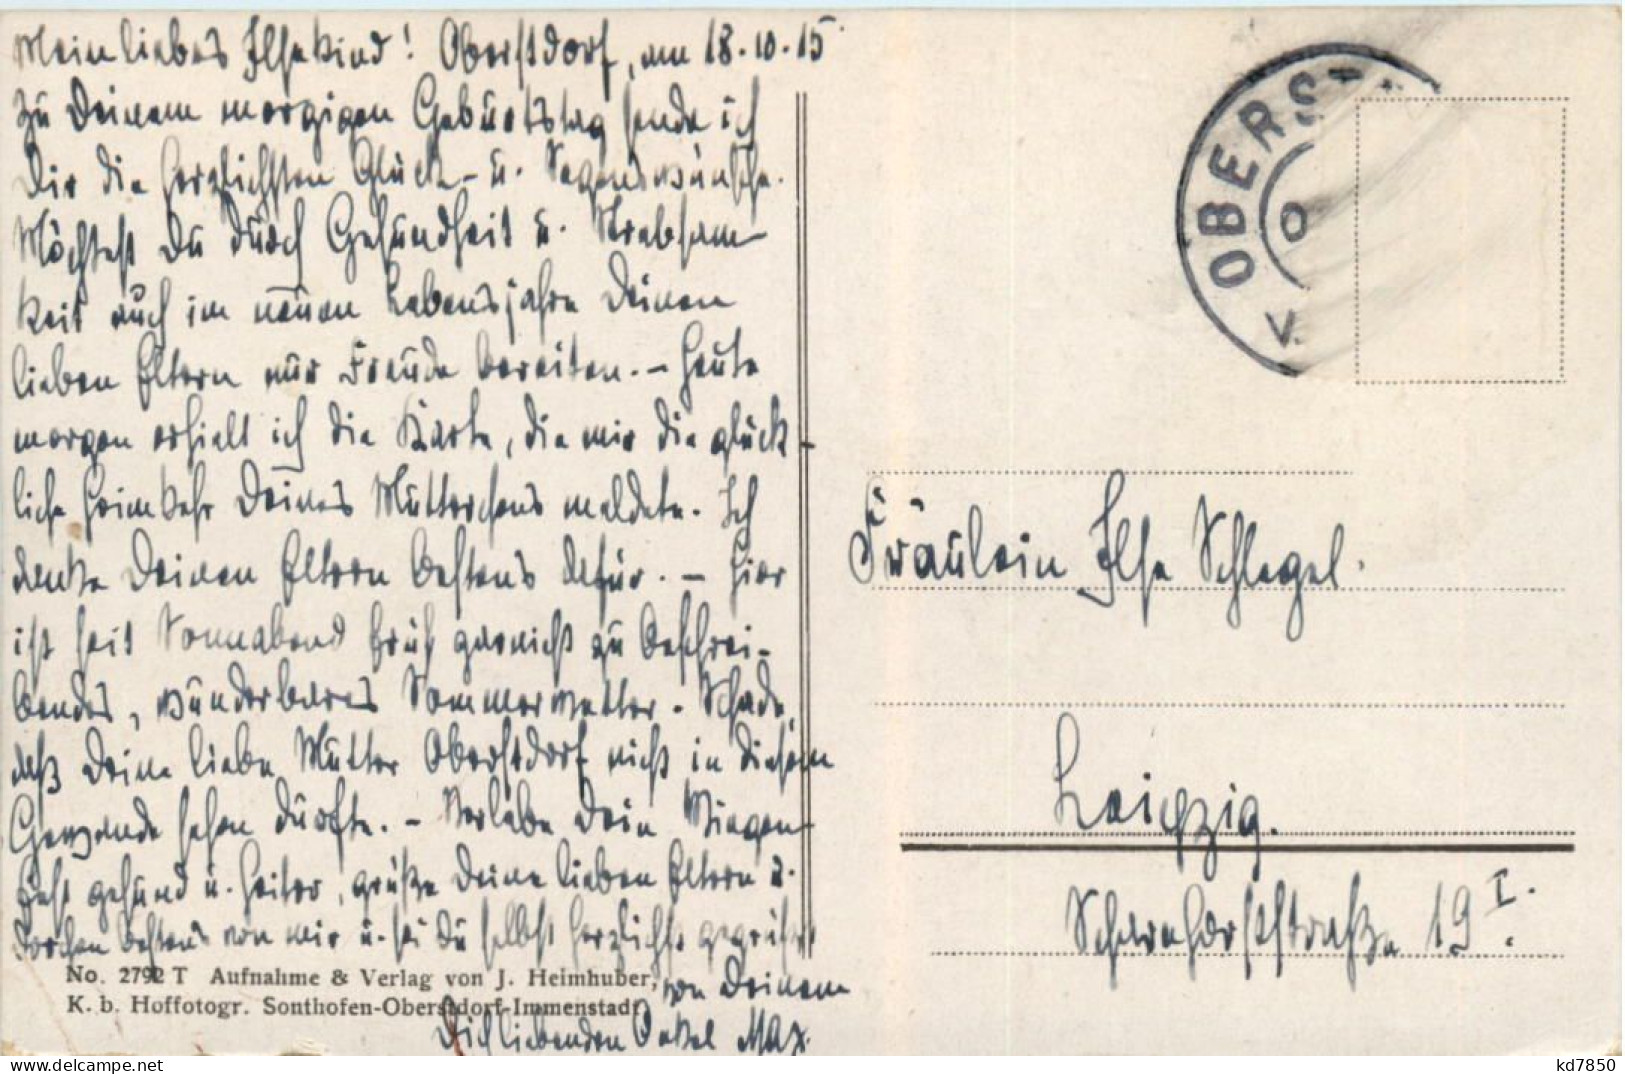 Mein liebes Ilsekind! Oberstdorf, am 18.10.15
Zu Deinem morgigen Geburtstag sende ich
Dir die herzlichsten Glück- u. Segenswünsche.
Möchtest Du durch Gesundheit u. Strebsam-
keit auch im neuen Lebensjahre Deinen
lieben Eltern nur Freude bereiten. – Heute
morgen erhielt ich die Karte, die mir die glück-
liche Heimkehr Deines Mutterchens meldete. Ich
danke Deinen Eltern bestens dafür. – Hier
ist seit Sonnabend früh garnicht zu beschrei-
bendes, wunderbares Sommerwetter. Schade,
daß Deine liebe Mutter Oberstdorf nicht in diesem
Gewande sehen durfte. – Verlebe Dein Wiegen-
fest gesund u. heiter, grüße Deine lieben Eltern u.
bestens von mir u. sei Du selbst herzlichst gegrüßt
von Deinem
Dich liebenden Onkel Max.
No. 2792 T Aufnahme & Verlag von J. Heimhuber,
K. b. Hoffotogr. Sonthofen-Oberstdorf-Immenstadt
OBERST
V. 0
Fräulein Ilse Schlegel.
Leipzig.
Scharnhorststraße 19 I.
kd7850